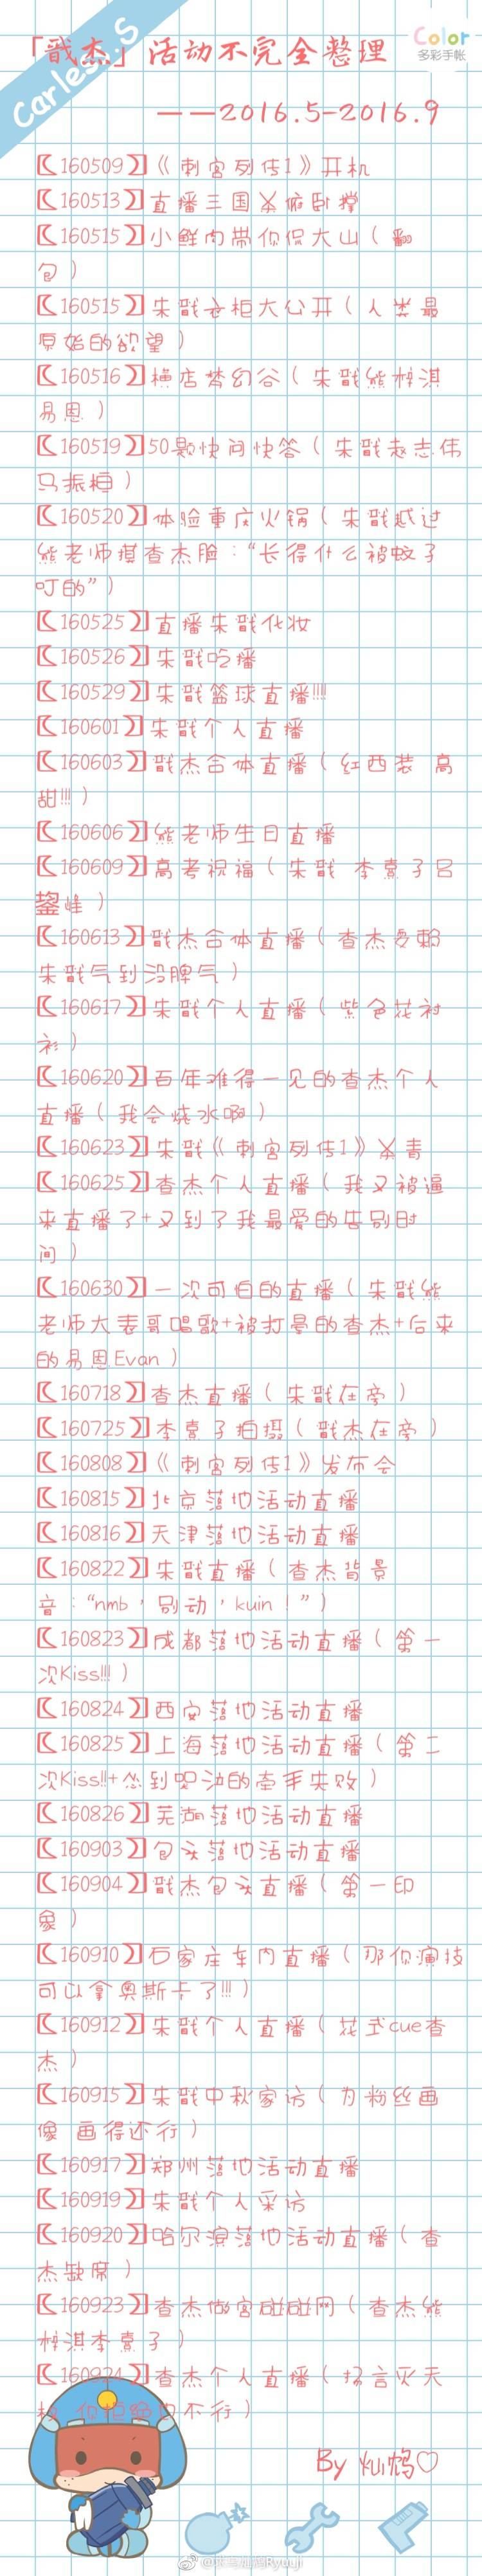 Carlest.S
「戬杰」活动不完全整理
Color
多彩手帐
——2016.5-2016.9
【160509】《刺客列传1》开机
【160513】直播三国杀俯卧撑
【160515】小鲜肉带你侃大山(翻
包)
【160515】朱戬衣柜大公开(人类最
原始的欲望)
【160516】横店梦幻谷(朱戬熊梓淇
易恩)
【160519】50题快问快答(朱戬赵志伟
马振桓)
【160520】体验重庆火锅(朱戬越过
熊老师摸查杰脸:“长得什么被蚊子
叮的”)
【160525】直播朱戬化妆
【160526】朱戬吃播
【160529】朱戬篮球直播!!!!
【160601】朱戬个人直播
【160603】戬杰合体直播(红西装 高
甜!!!)
【160606】熊老师生日直播
【160609】高考祝福(朱戬 李熹子吕
鋆峰)
【160613】戬杰合体直播(查杰耍赖
朱戬气到没脾气)
【160617】朱戬个人直播(紫色花衬
衫)
【160620】百年难得一见的查杰个人
直播(我会烧水啊)
【160623】朱戬《刺客列传1》杀青
【160625】查杰个人直播(我又被逼
来直播了+又到了我最爱的告别时
间)
【160630】一次可怕的直播(朱戬熊
老师大表哥唱歌+被打晕的查杰+后来
的易恩Evan)
【160718】查杰直播(朱戬在旁)
【160725】李熹子拍摄(戬杰在旁)
【160808】《刺客列传1》发布会
【160815】北京落地活动直播
【160816】天津落地活动直播
【160822】朱戬直播(查杰背景
音:“nmb,别动,kuin!”)
【160823】成都落地活动直播(第一
次Kiss!!!)
【160824】西安落地活动直播
【160825】上海落地活动直播(第二
次Kiss!!+怂到哭泣的牵手失败)
【160826】芜湖落地活动直播
【160903】包头落地活动直播
【160904】戬杰包头直播(第一印
象)
【160910】石家庄车内直播(那你演技
可以拿奥斯卡了!!!)
【160912】朱戬个人直播(花式cue查
杰)
【160915】朱戬中秋家访(为粉丝画
像 画得还行)
【160917】郑州落地活动直播
【160919】朱戬个人采访
【160920】哈尔滨落地活动直播(查
杰缺席)
【160923】查杰做客碰碰网(查杰熊
梓淇李熹子)
【160924】查杰个人直播(扬言灭天
你拒绝也不行)
By 灿鸩♡
Ryuuji